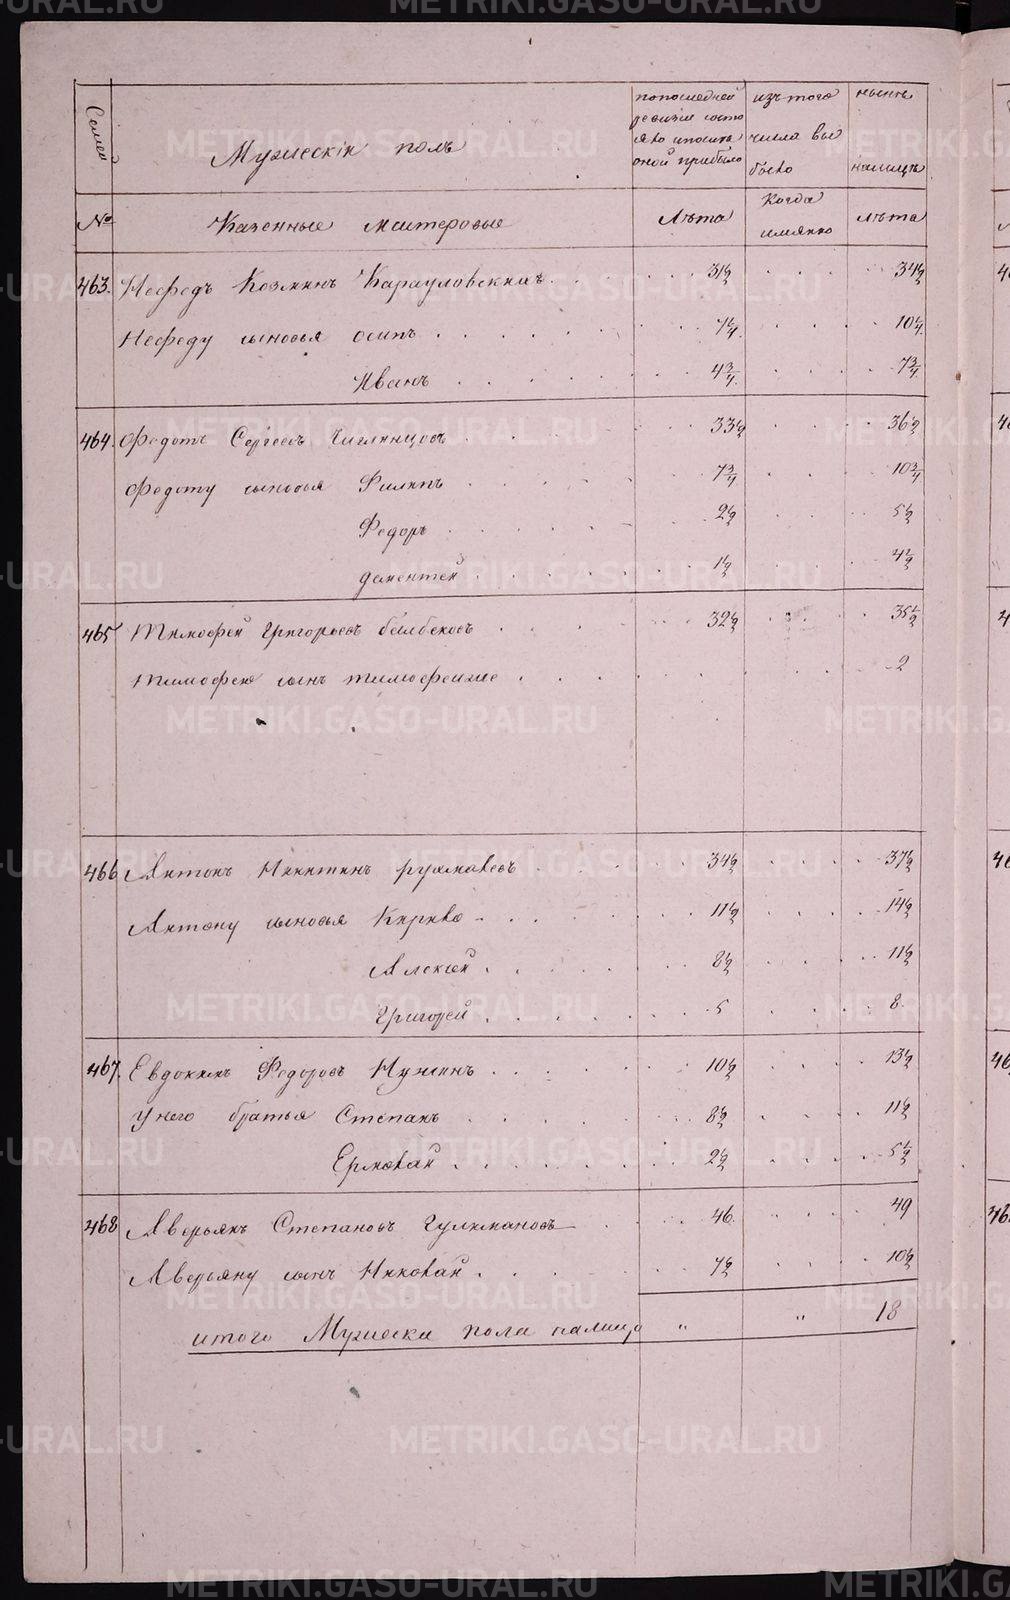 Семей
Мужескiй полъ
попоследней ревизiи состо яло ипосиле оной прибыло
изъ того числа вы было
нынѣ налицъ
№
Казенные мастеровые
Лѣта
Когда имянно
лѣта
463. Нефедъ Козминъ Карауловскихъ 31½ 34½
Нефеду сыновья осипъ 7¼ 10¼
Иванъ 4¾ 7¾
464. Федотъ Сергеевъ 33½ 36½
Федоту сыновья Филипъ 7¾ 10¾
Федоръ 2½ 5½
дементей 1½ 4½
465 Тимофей Григорьевъ 32½ 35½
Тимофею сынъ тимофей же 2
466 Антонъ Никитинъ 34½ 37½
Антону сыновья Кирило 11½ 14½
Алексей 8½ 11½
Григорей 5 8
467. Евдокимъ Федоровъ 10½ 13½
у него братья Степанъ 8½ 11½
Ермолай 2½ 5½
468 Аверьянъ Степановъ 46. 49
Аверьяну сынъ Николай 7½ 10½
итого Мужеска пола налицо " " 18
METRIKI.GASO-URAL.RU